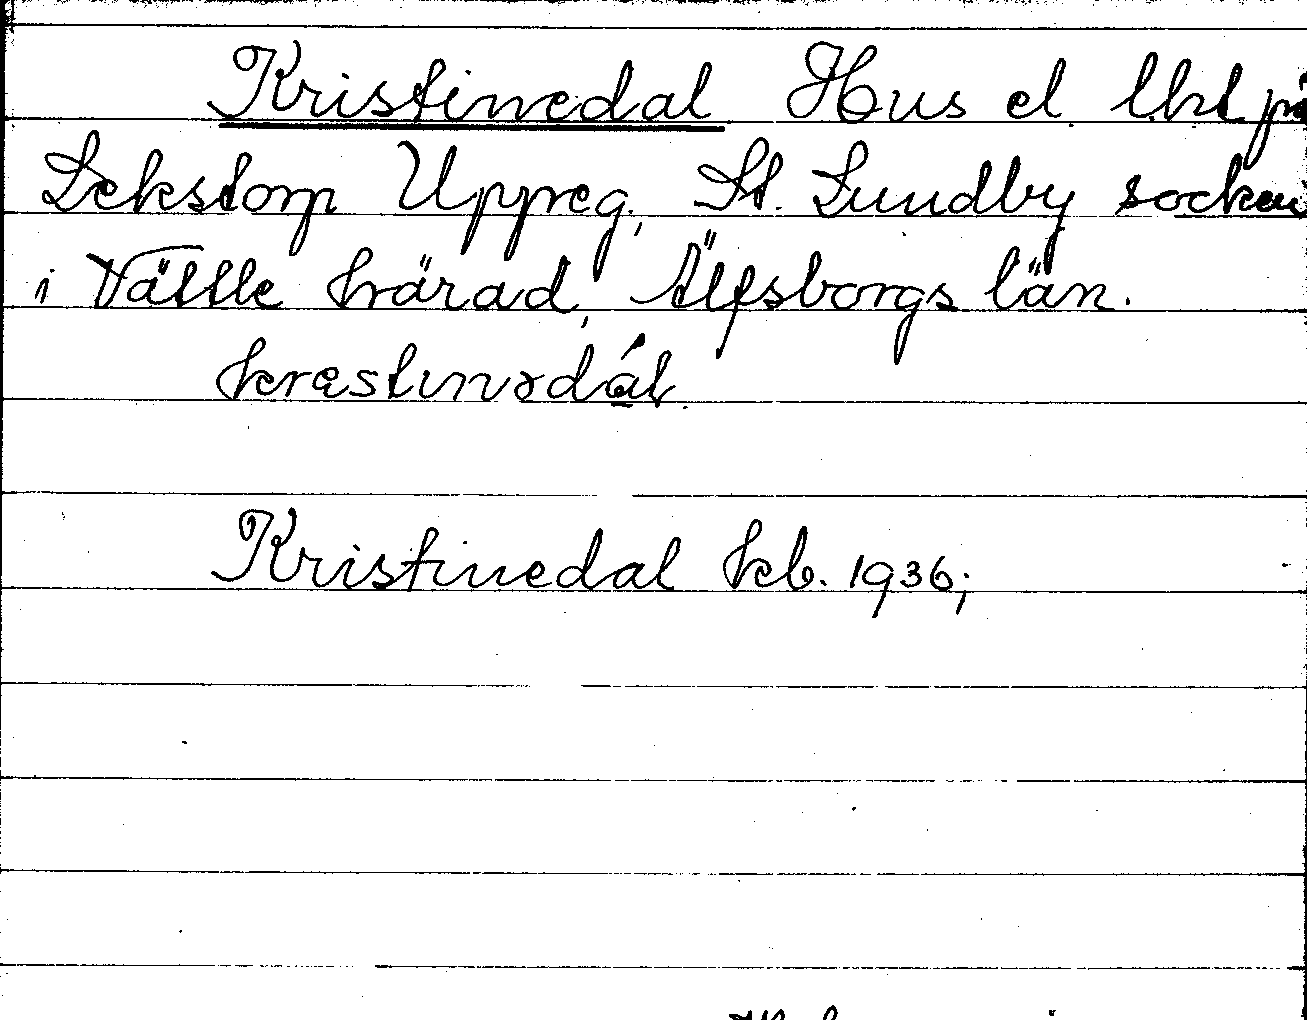 Kristinedal Hus el. lht på
Lekstorp Uppreg, St. Lundby socken
i Vättle härad, Älfsborgs län.
kræstinədál.
Kristinedal kb. 1936;